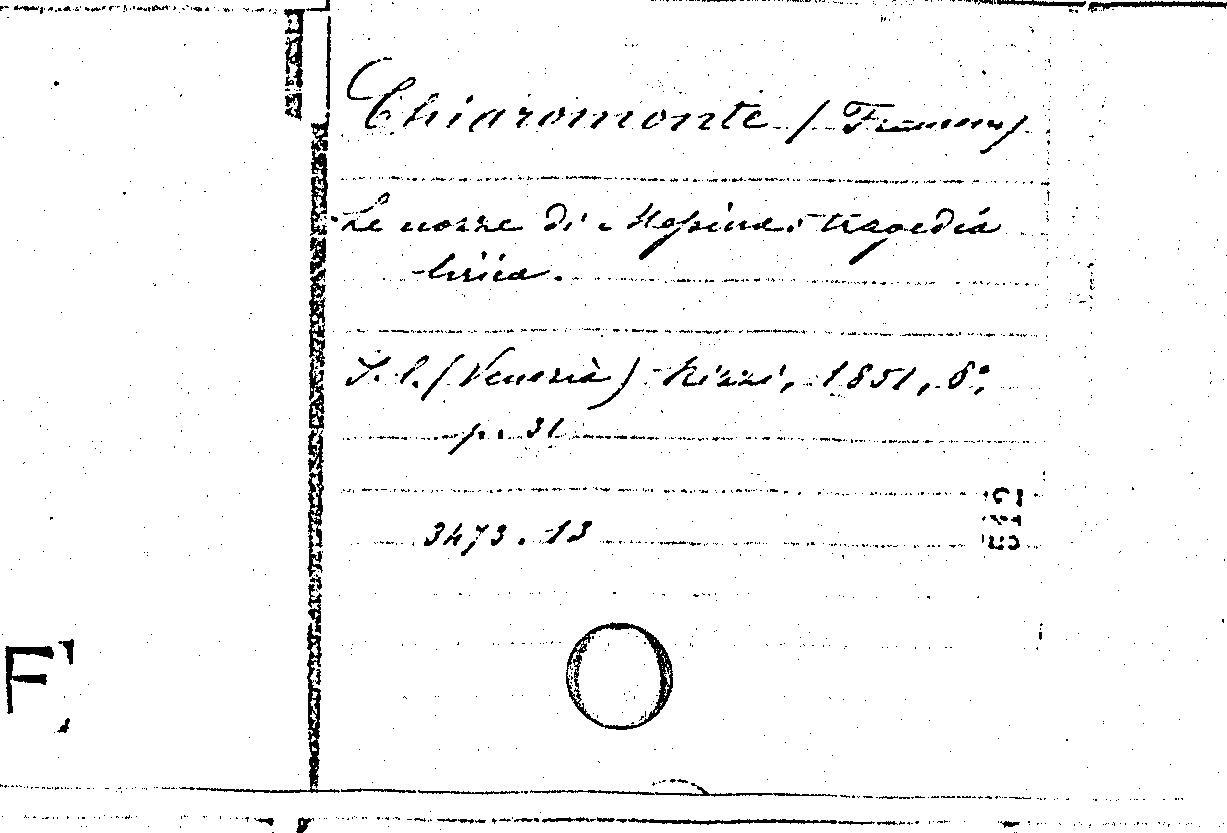 Chiaromonte (Francesco)
Le nozze di Messina: tragedia
lirica.
S. l. (Venezia) Rizzi, 1851, 8°,
p. 31
3473.13
F